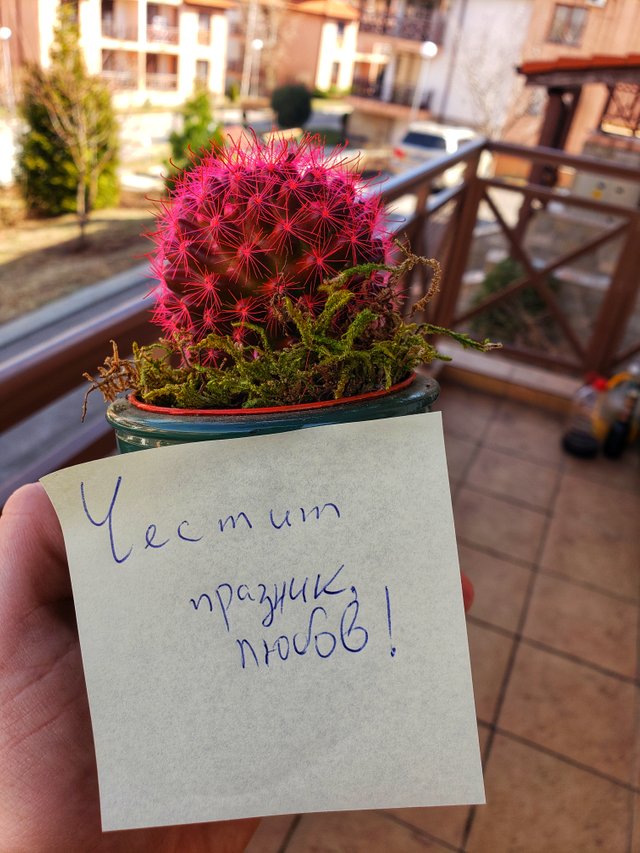 Честит
празник,
любов!